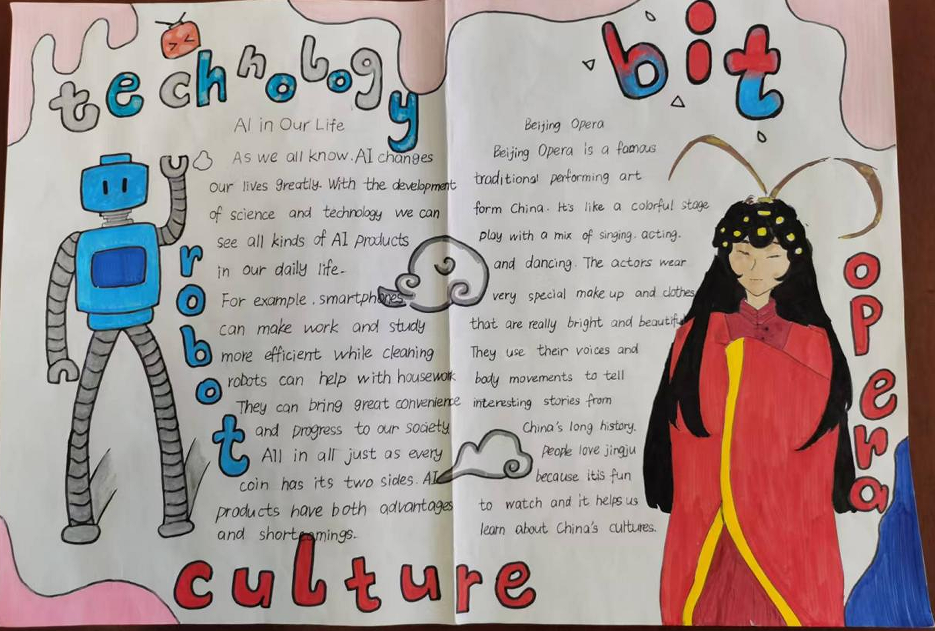 technology
AI in Our Life
As we all know. AI changes
our lives greatly. With the development
of science and technology we can
see all kinds of AI products
in our daily life.
For example, smartphones
can make work and study
more efficient while cleaning
robots can help with housework
They can bring great convenience
and progress to our society
All in all just as every
coin has its two sides. AI
products have both advantages
and shortcomings.
robot
bit
Beijing Opera
Beijing Opera is a famous
traditional performing art
form China. It's like a colorful stage
play with a mix of singing. acting.
and dancing. The actors wear
very special make up and clothes
that are really bright and beautiful
They use their voices and
body movements to tell
interesting stories from
China's long history.
People love jingju
because itis fun
to watch and it helps us
learn about China's cultures.
opera
culture